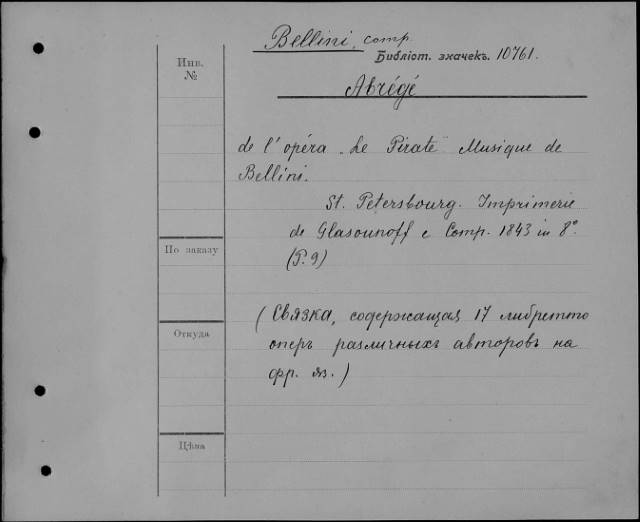 Bellini, comp.
Инв.
№
Библіот. значекъ. 10761.
Abrégé
de l'opéra „Le Pirate" Musique de
Bellini.
St. Petersbourg. Imprimerie
de Glasounoff e Comp. 1843 in 8°.
(P. 9)
По заказу
(Связка, содержащая 17 либретто
Откуда
оперъ различныхъ авторовъ на
фр. яз.)
Цѣна